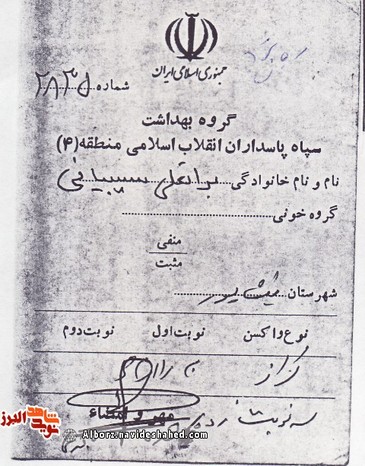 جمهوری اسلامی ایران
شماره ۲۸۳۵
گروه بهداشت
سپاه پاسداران انقلاب اسلامی منطقه (۴)
نام و نام خانوادگی براتعلی سیبیانی
گروه خونی
منفی
مثبت
شهرستان
نوع واکسن نوبت اول نوبت دوم
کزاز
مهر و امضاء
سه نوبت
شاهد
نوید البرز
Alborz.navideshahed.com